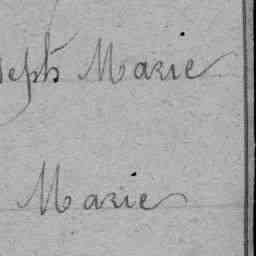 seph Marie
Marie